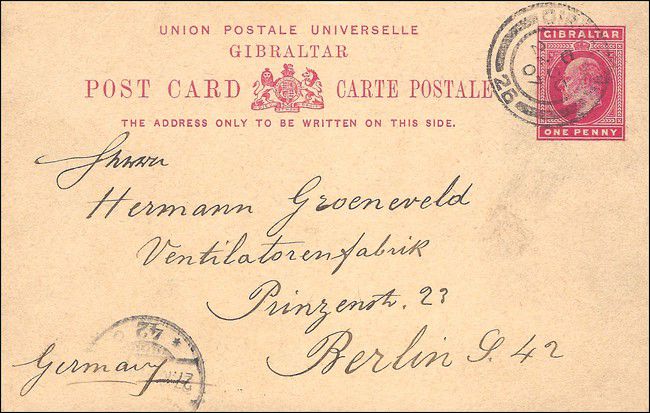 UNION POSTALE UNIVERSELLE
GIBRALTAR
POST CARD CARTE POSTALE
THE ADDRESS ONLY TO BE WRITTEN ON THIS SIDE.
GIBRALTAR
ONE PENNY
26
Herrn
Hermann Groeneveld
Ventilatorenfabrik
Prinzenstr. 23
Berlin S. 42
Germany
* 42